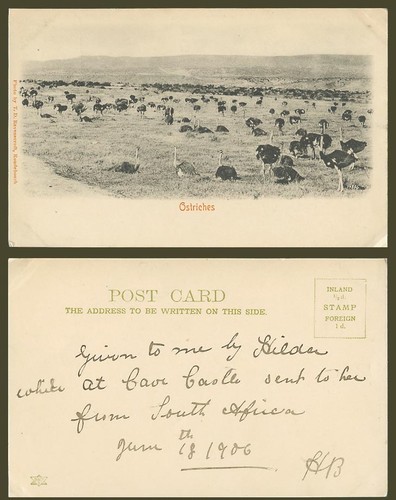 Photo by T. D. Ravenscroft, Rondebosch
Ostriches
POST CARD
THE ADDRESS TO BE WRITTEN ON THIS SIDE.
INLAND
½d.
STAMP
FOREIGN
1d.
Given to me by Hilda
while at Cave Castle sent to her
from South Africa
June 18th 1906
HB